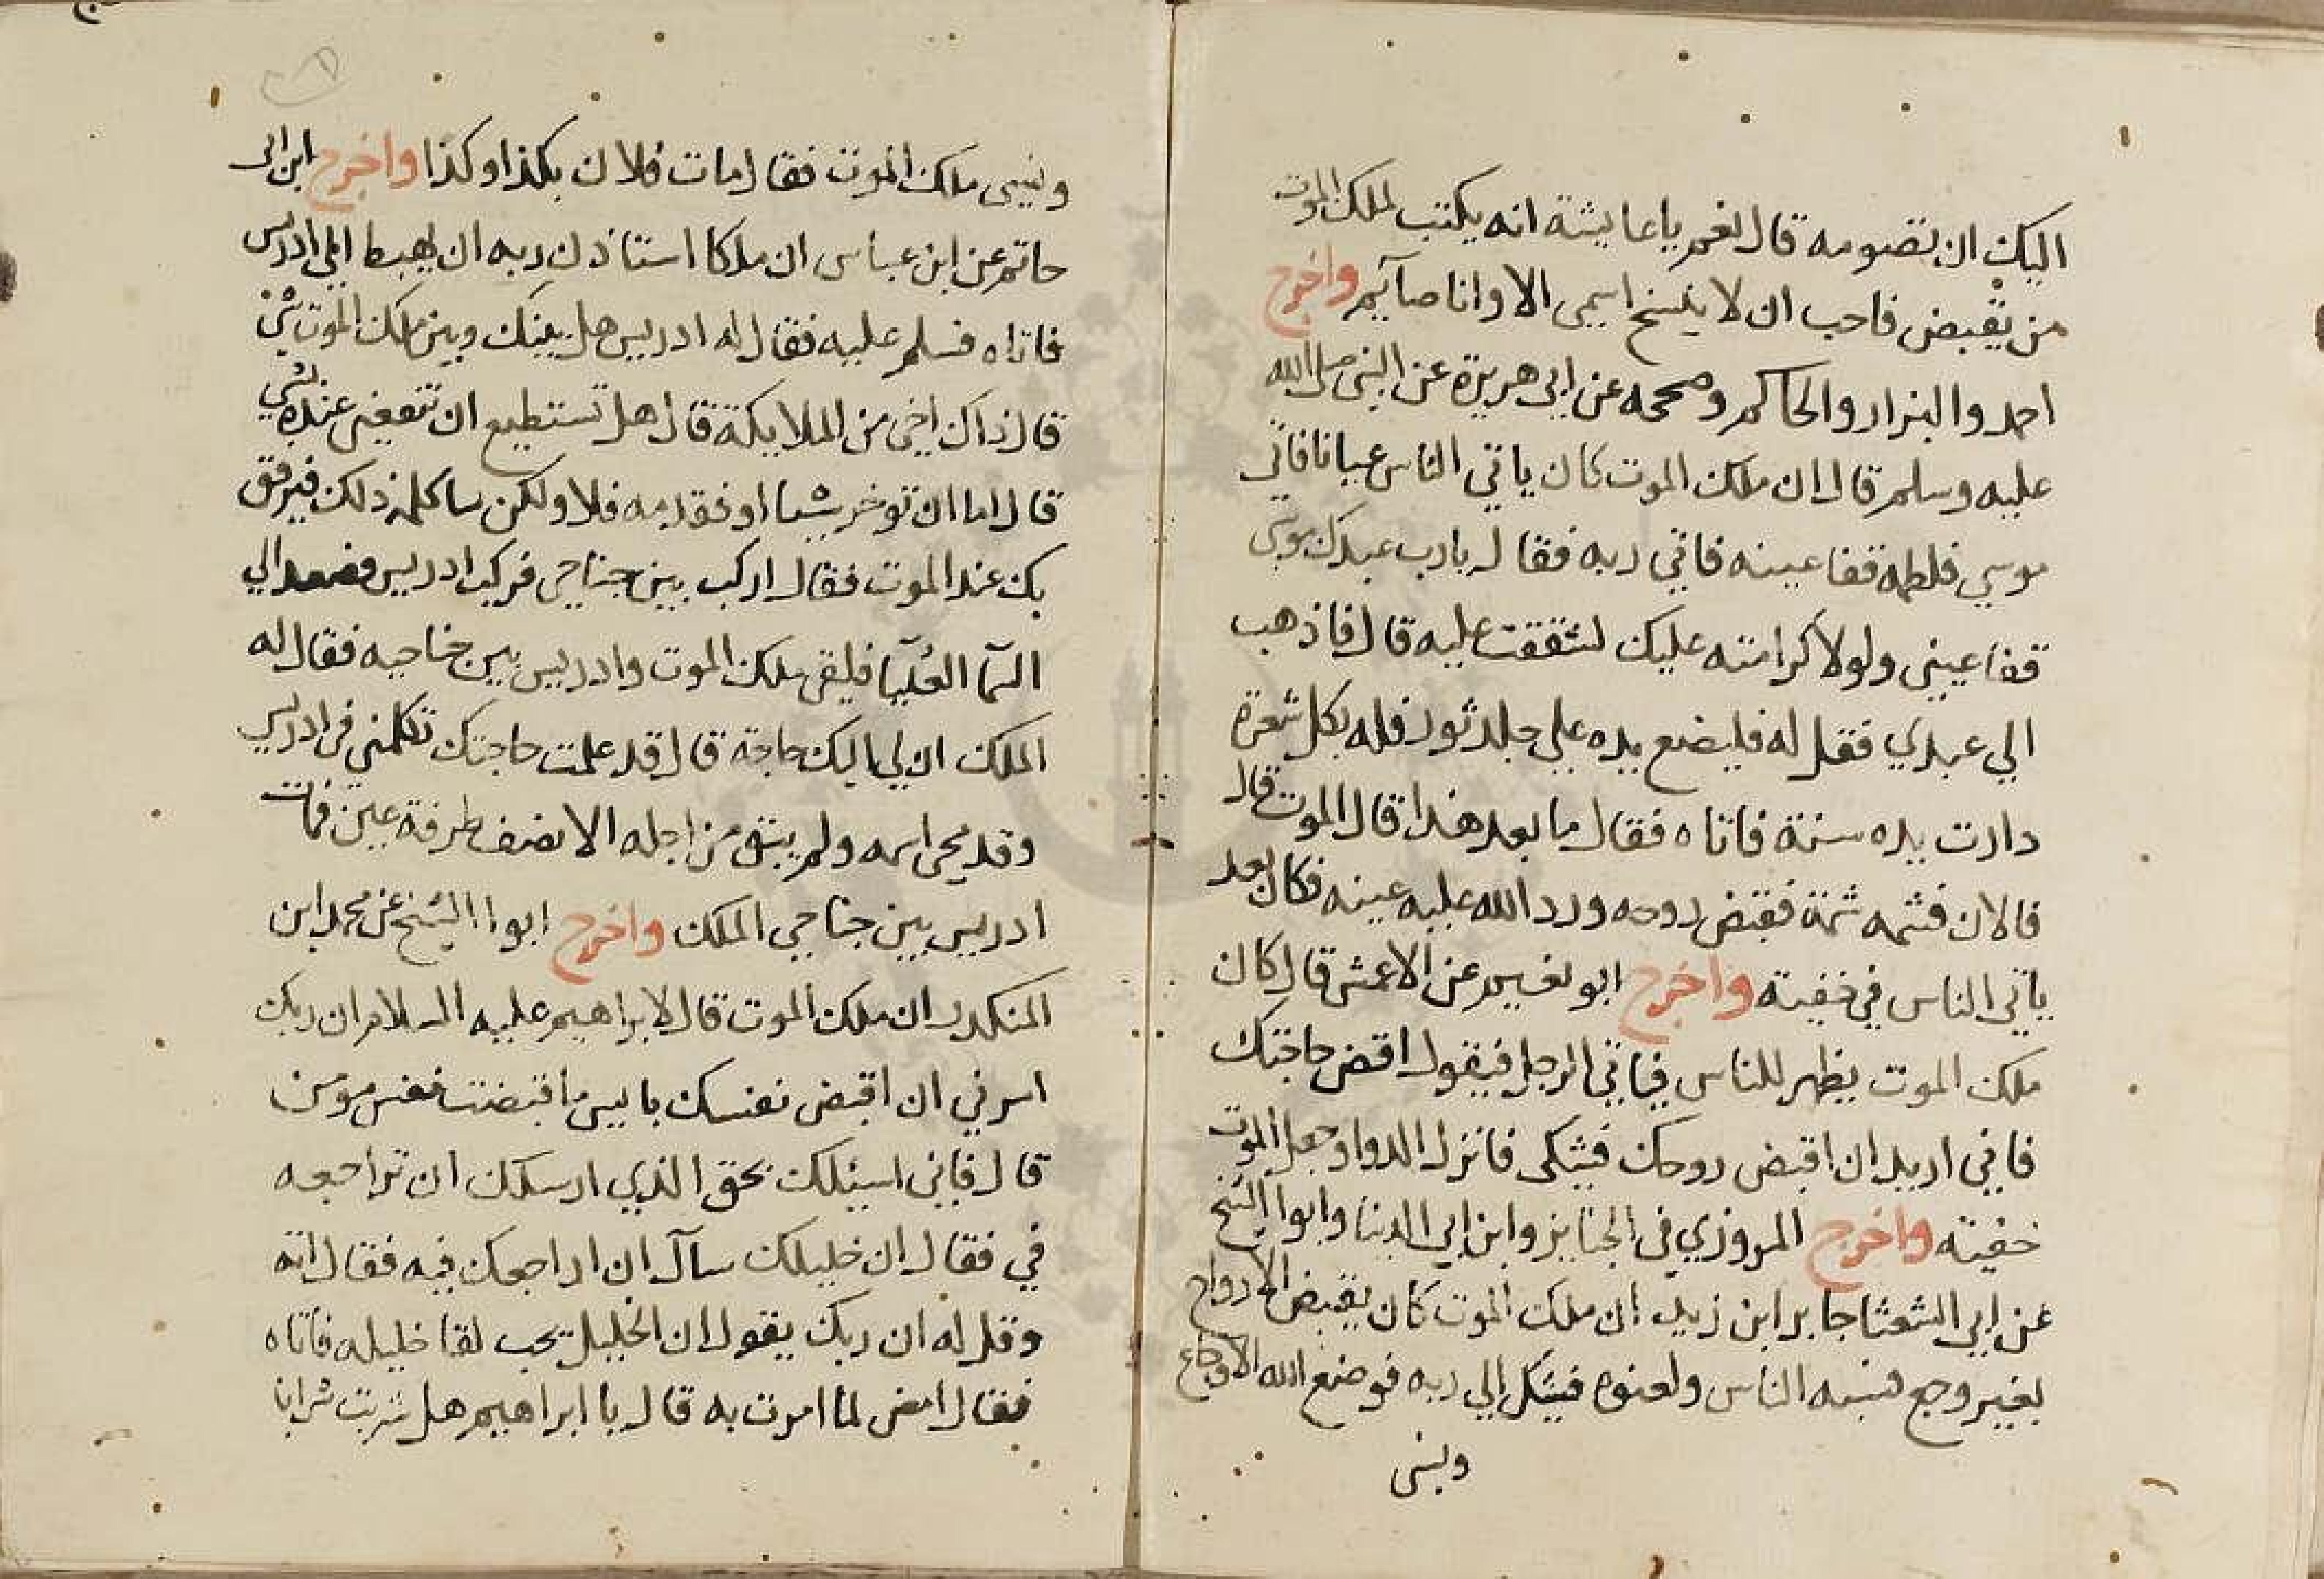 اليك ان تصومه قال نعم يا عايشة انه يكتب لملك الموت
من يقبض فاحب ان لا ينسخ اسمي الا وانا صآئم واخرج
احمد والبزار والحاكم وصححه عن ابي هريرة عن النبي صلى الله
عليه وسلم قال ان ملك الموت كان ياتي الناس عيانا فاتي
موسي فلطمه ففقا عينه فاتي ربه فقال يارب عبدك موسي
فقا عيني ولولا كرامته عليك لشققت عليه قال فاذهب
الي عبدي فقل له فليضع يده علي جلد ثور فله بكل شعرة
دارت يده سنة فاتاه فقال ما بعد هذا قال الموت قال
فالان فشمه شمة فقبض روحه ورد الله عليه عينه فكان بعد
ياتي الناس في خفيته واخرج ابو نعيم عن الاعمش قال كان
ملك الموت يظهر للناس فياتي الرجل فيقول اقض حاجتك
فاني اريد ان اقبض روحك فشكى فانزل الدوا وجعل الموت
خفيته واخرج المروزي في الجنايز وابن ابي الدنيا وابوا الشيخ
عن ابي الشعثا جابر ابن زيد ان ملك الموت كان يقبض الارواح
بغير وجع فسبه الناس ولعنوه فشكى الي ربه فوضع الله الاوجاع
ونسى
ونسى ملك الموت فقال مات فلان بكذا وكذا واخرج ابن ابى
حاتم عن ابن عباس ان ملكا استاذن ربه ان يهبط الي ادريس
فاتاه فسلم عليه فقال له ادريس هل بينك وبين ملك الموت شئ
قال ذاك اخي من الملايكة قال هل تستطيع ان تنفعني عنده بشي
قال اما ان توخر شيا او تقدمه فلا ولكن ساكلمه لك فيرفق
بك عند الموت فقال اركب بين جناحي فركب ادريس فصعد الي
السمآ العليا فلقي ملك الموت وادريس بين جناحيه فقال له
الملك ان لي اليك حاجة قال قد علمت حاجتك تكلمني في ادريس
وقد محي اسمه ولم يبق من اجله الا نصف طرفة عين فمات
ادريس بين جناحي الملك واخرج ابوا الشيخ عن محمد ابن
المنكدر ان ملك الموت قال لابراهيم عليه السلام ان ربك
امرني ان اقبض نفسك بايسر ما قبضت نفس مومن
قال فاني اسئلك بحق الذي ارسلك ان تراجعه
في فقال ان خليلك سآل ان اراجعك فيه فقال اته
وقل له ان ربك يقول ان الخليل يحب لقا خليله فاتاه
فقال امض لما امرت به قال يا ابراهيم هل شربت شرابا